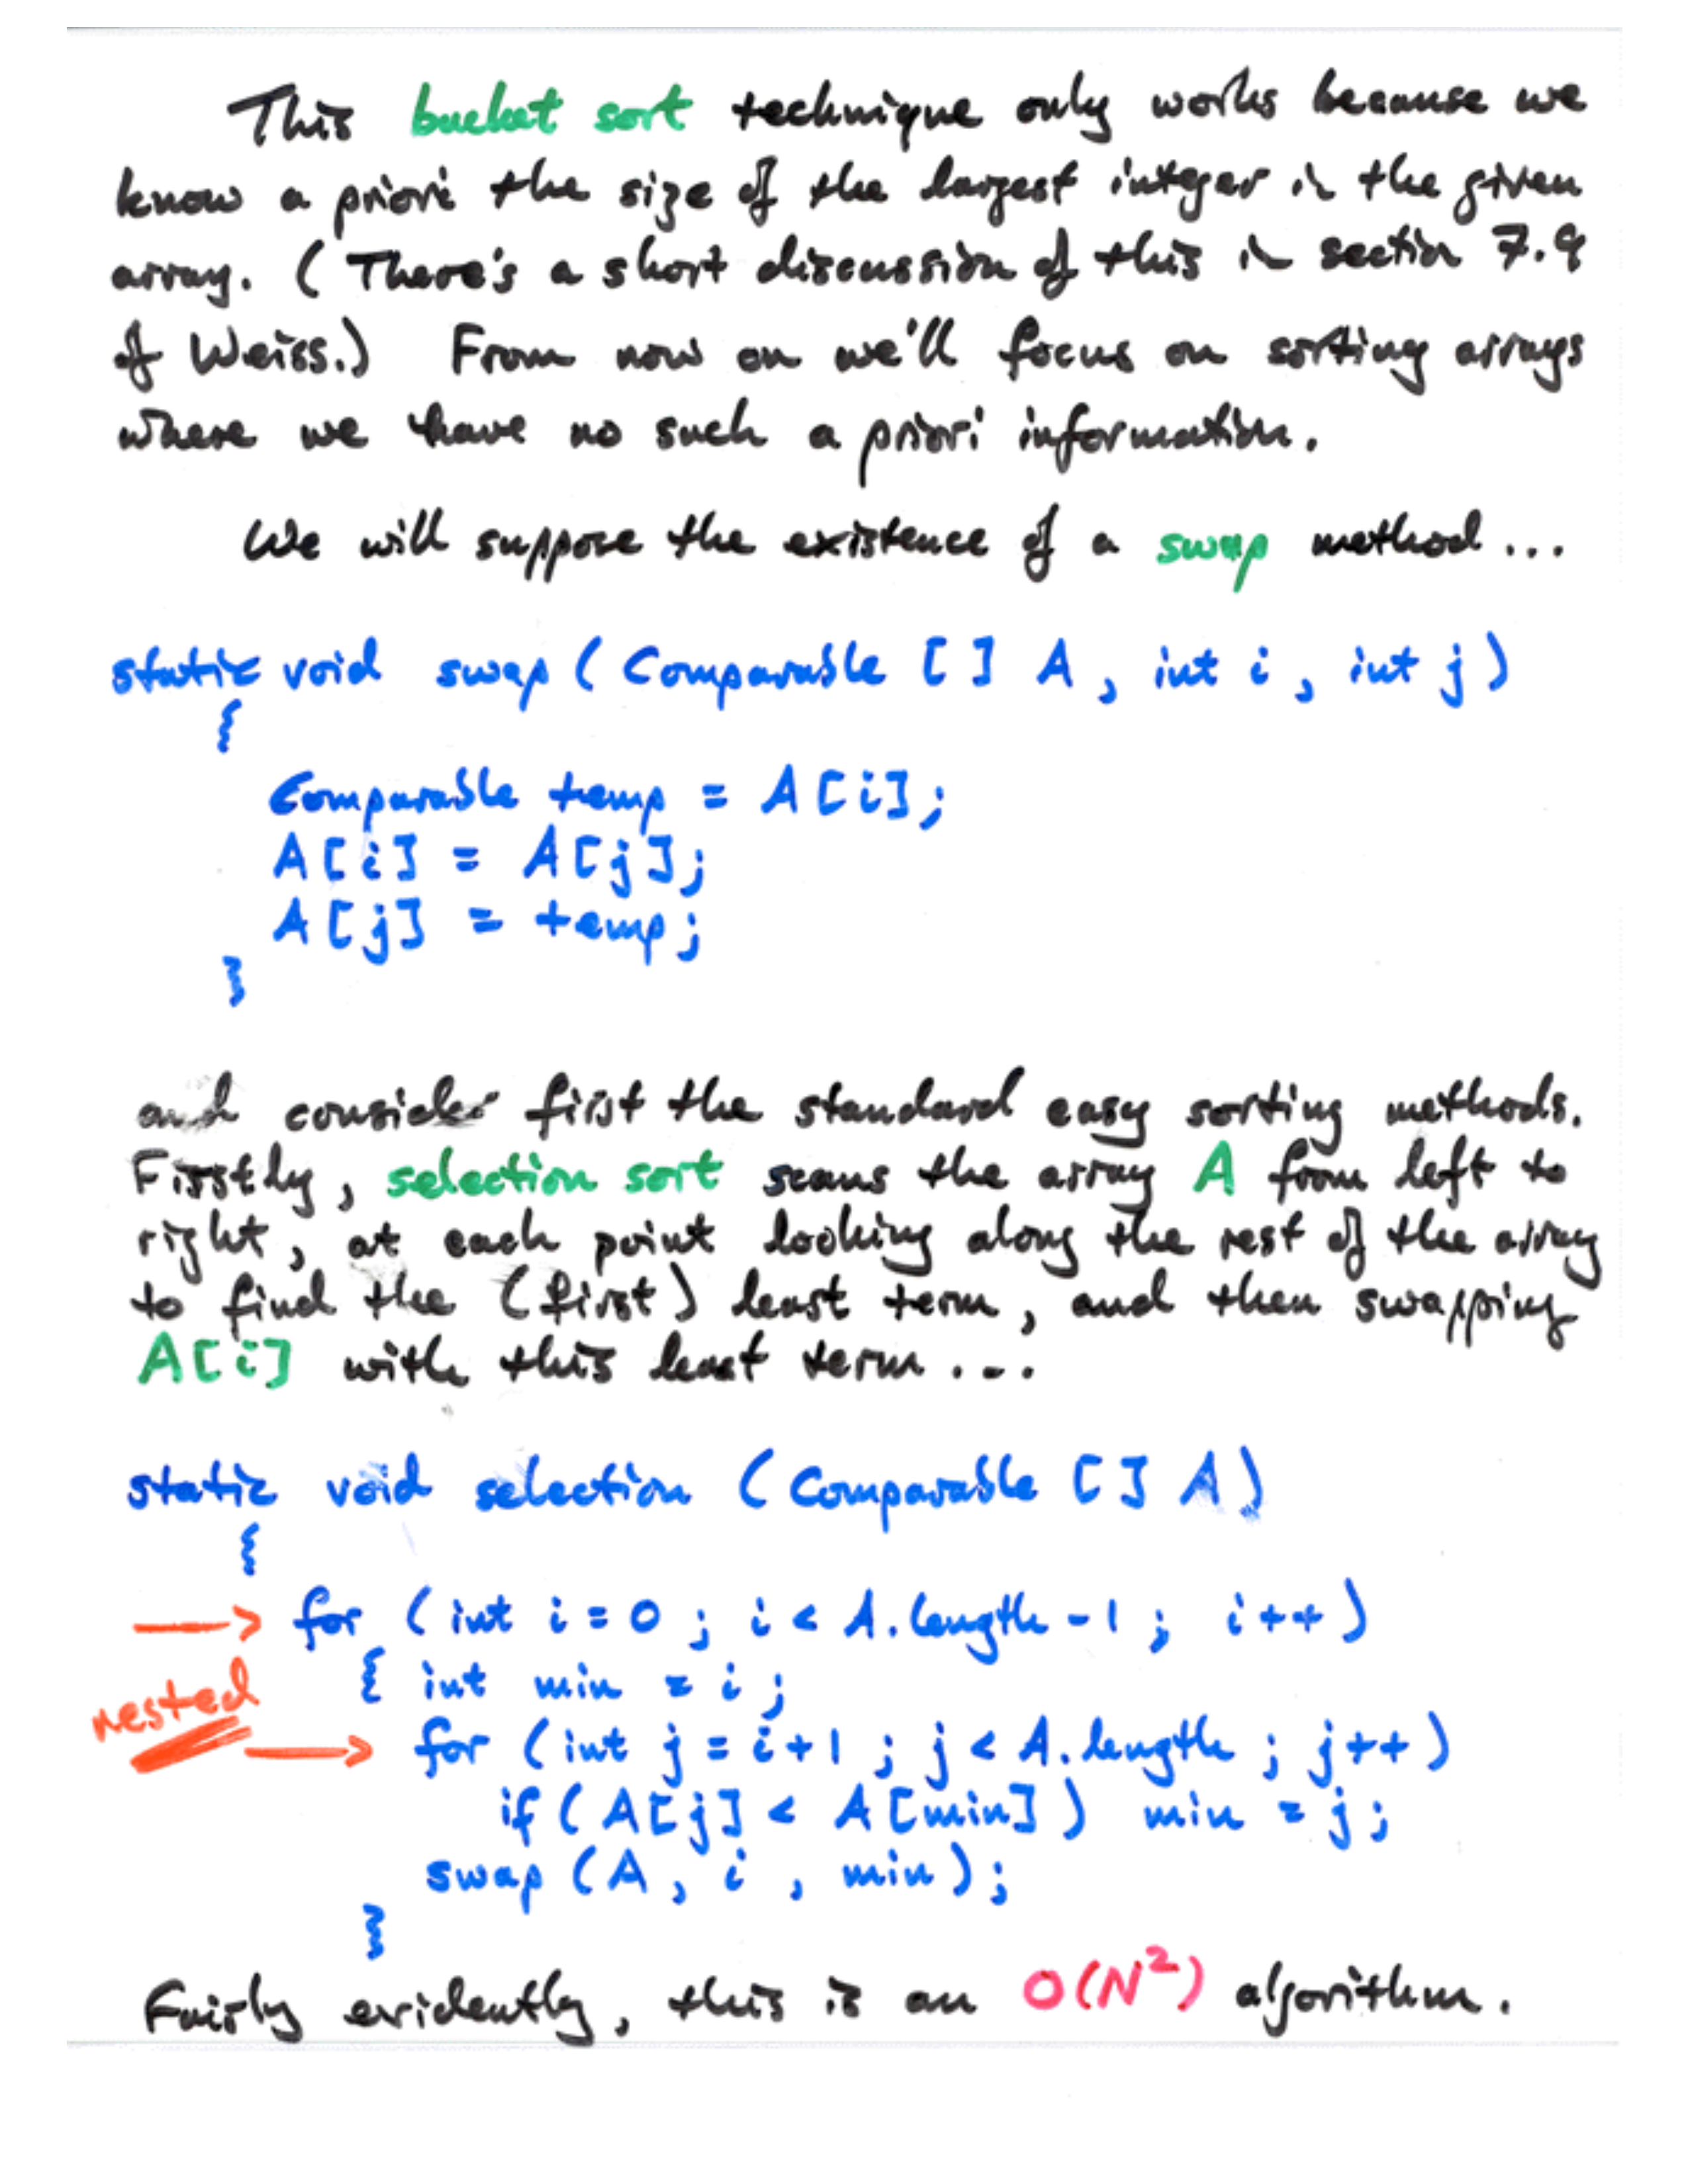 This bucket sort technique only works because we
know a priori the size of the largest integer in the given
array. (There's a short discussion of this in section 7.9
of Weiss.) From now on we'll focus on sorting arrays
where we have no such a priori information.
We will suppose the existence of a swap method ...
static void swap ( Comparable [ ] A , int i , int j )
{
Comparable temp = A[i];
A[i] = A[j];
A[j] = temp;
}
and consider first the standard easy sorting methods.
Firstly, selection sort scans the array A from left to
right, at each point looking along the rest of the array
to find the (first) least term, and then swapping
A[i] with this least term ...
static void selection ( Comparable [ ] A )
{
→ for ( int i = 0 ; i < A.length - 1 ; i++ )
{ int min = i ;
nested
→ for ( int j = i+1 ; j < A.length ; j++ )
if ( A[j] < A[min] ) min = j ;
swap ( A , i , min ) ;
}
Fairly evidently, this is an O(N²) algorithm.